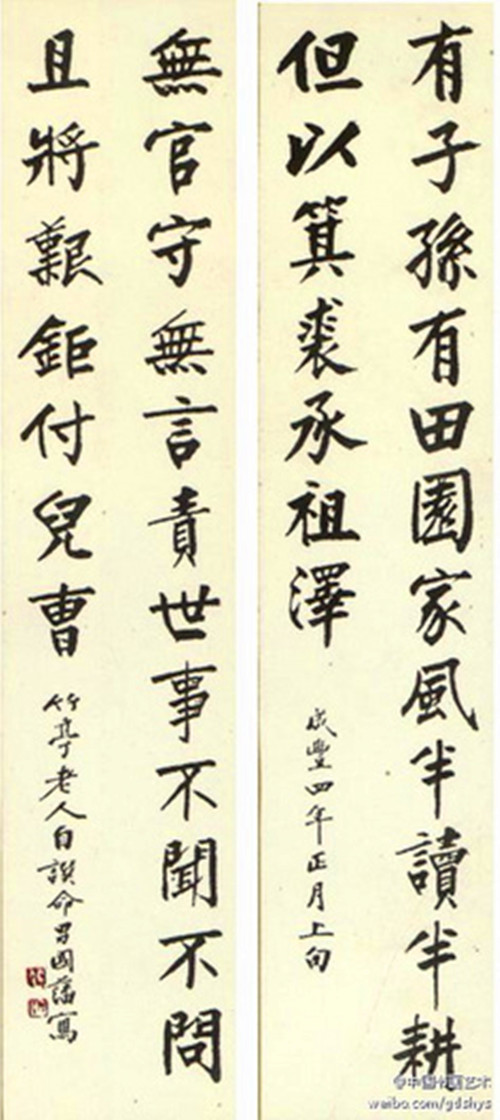 有子孫有田園家風半讀半耕
但以箕裘承祖澤
咸豐四年正月上旬
無官守無言責世事不聞不問
且將艱鉅付兒曹
竹亭老人自譔命男國藩寫
@中国书画艺术
weibo.com/gdshys